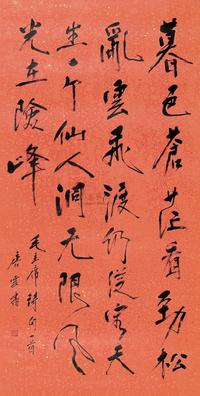 暮色蒼茫看勁松
亂雲飛渡仍從容天
生一个仙人洞无限风
光在險峰
毛主席詩句一首
唐雲書